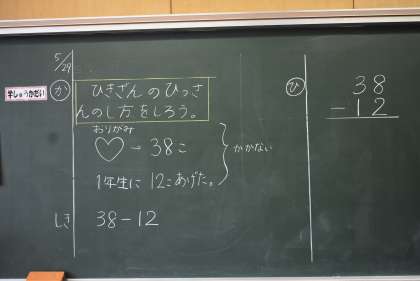 5/29
学しゅうかだい
か
ひきざんのひっさ
んのし方をしろう。
おりがみ
♡→38こ
1年生に 12こあげた。
かかない
しき 38-12
ひ
38
-12